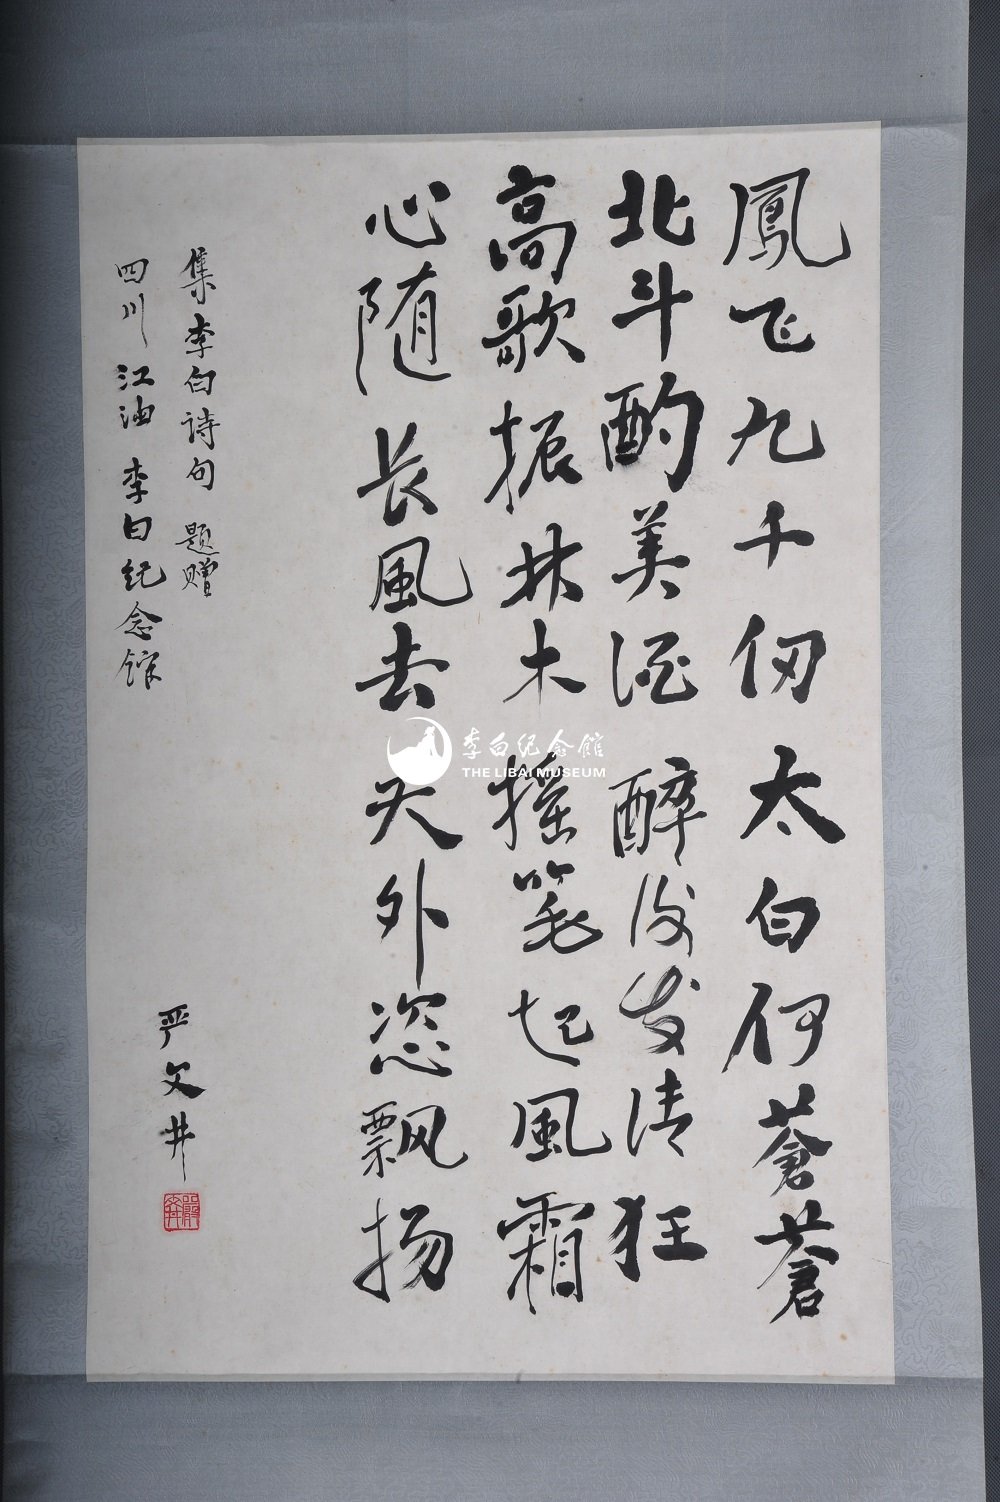 鳳飞九千仞太白何蒼蒼
北斗酌美酒醉後发清狂
高歌振林木摇笔起風霜
心随长風去天外恣飘扬
集李白诗句 题赠
四川江油李白纪念馆
严文井
李白纪念馆
THE LIBAI MUSEUM